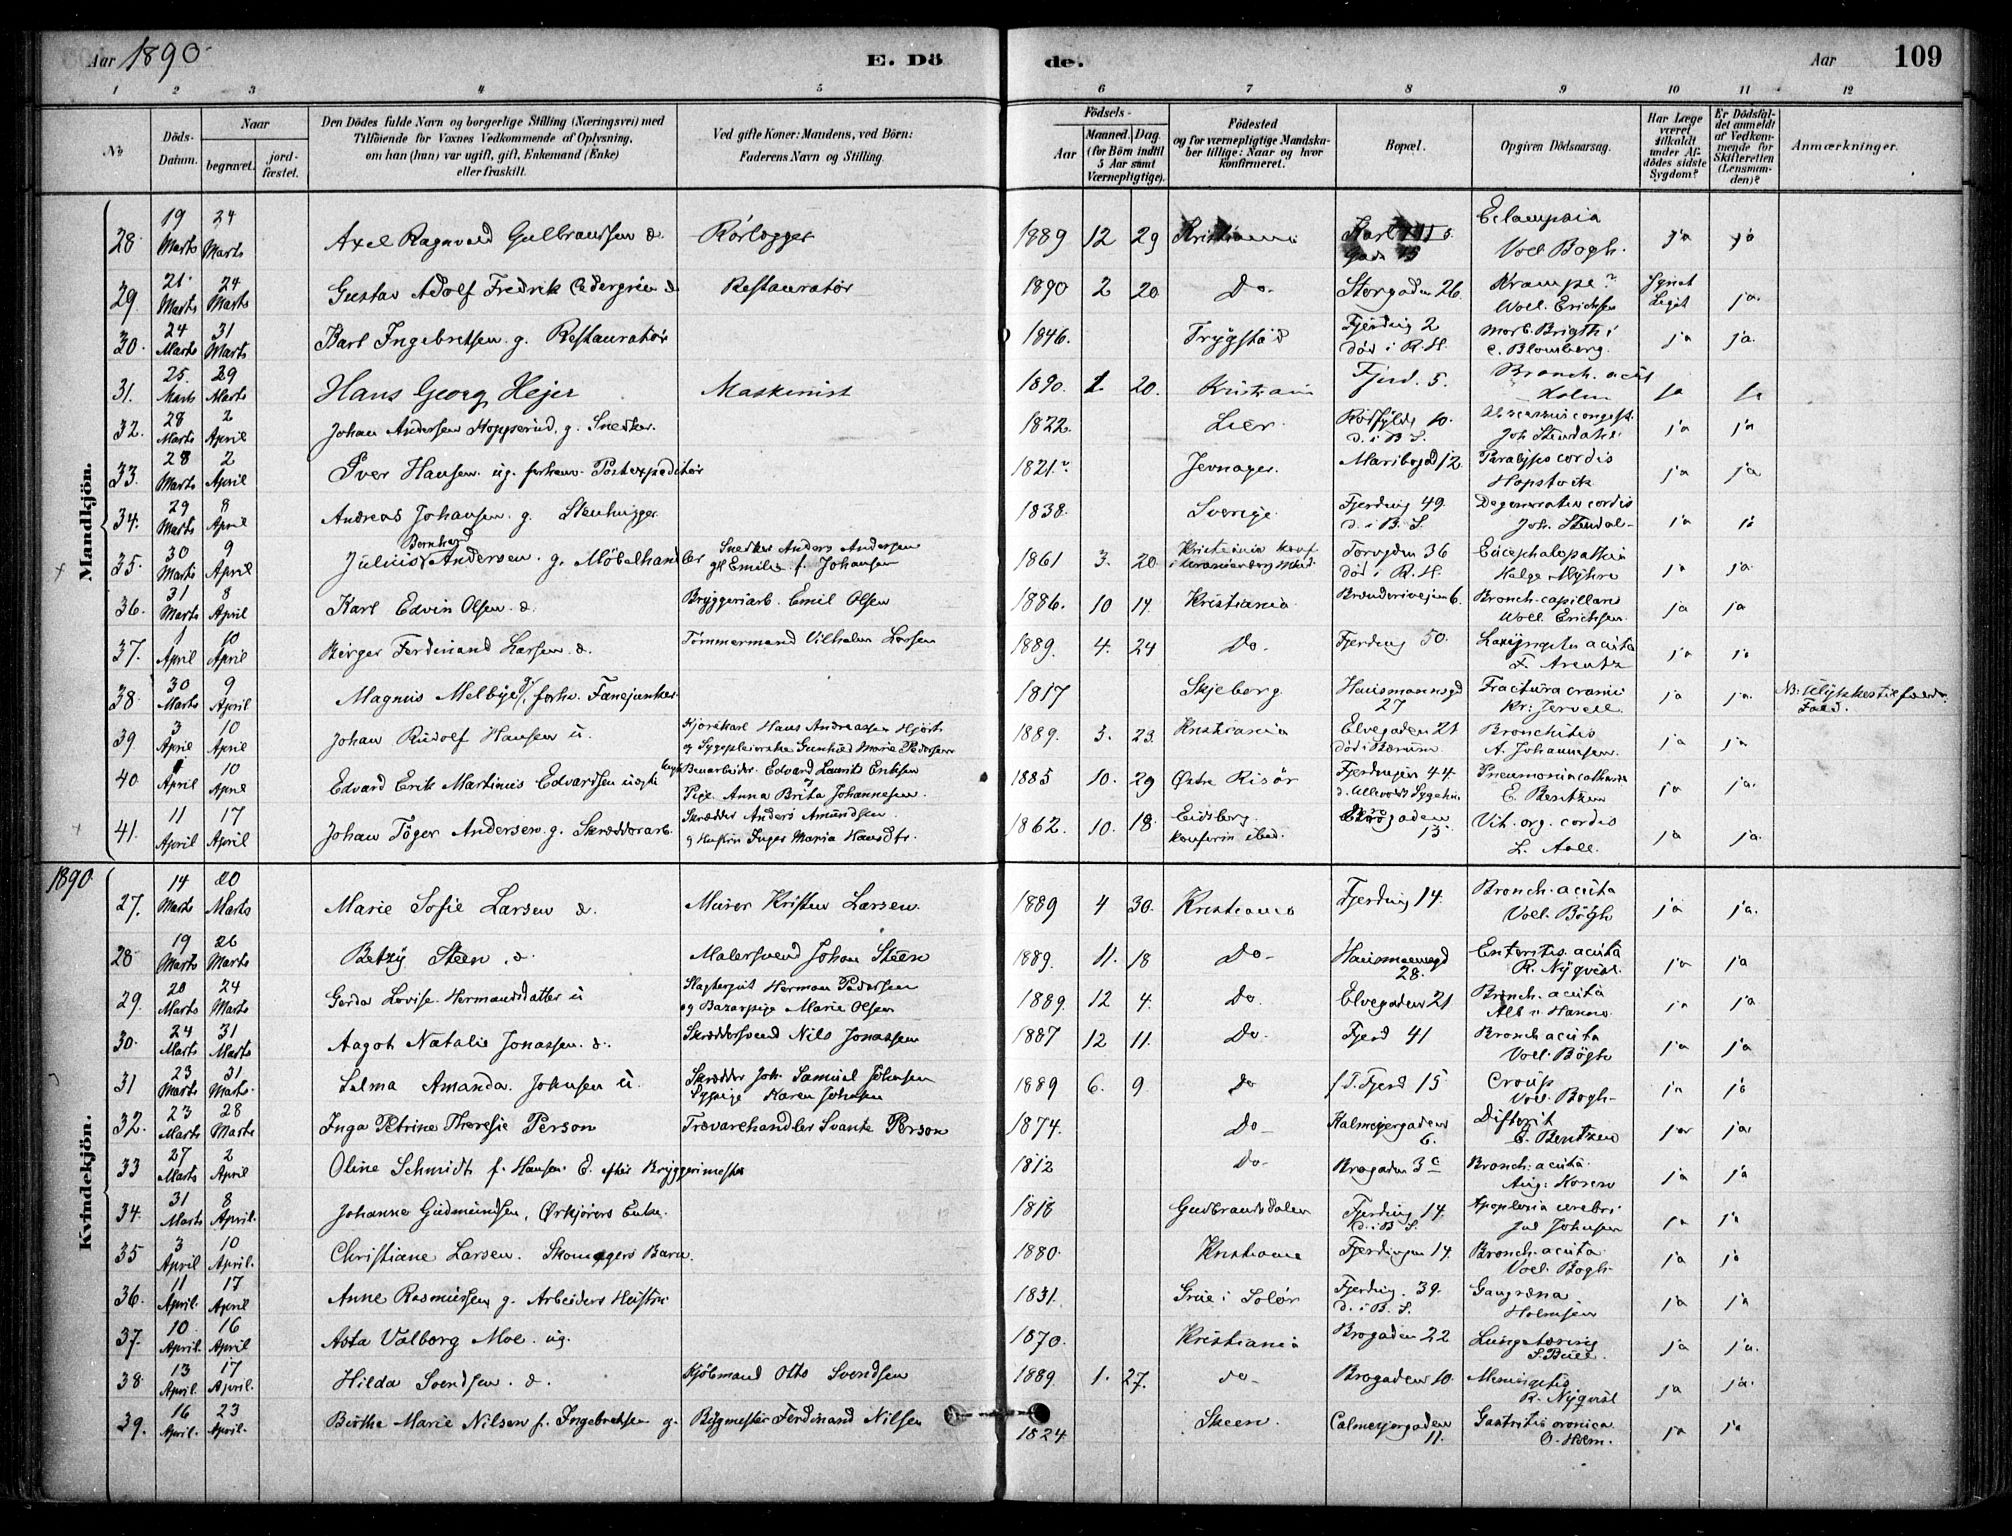 Aar 1890
E. Dö
de.
Aar
109
1 2 3 4 5 6 7 8 9 10 11 12
No
Döds-Datum.
Naar
begravet.
jord-fæstet.
Den Dödes fulde Navn og borgerlige Stilling (Næringsvei) med
Tilföiende for Voxnes Vedkommende af Oplysning,
om han (hun) var ugift, gift, Enkemand (Enke)
eller fraskilt.
Ved gifte Koner: Mandens, ved Börn:
Faderens Navn og Stilling.
Födsels-
Aar
Maaned. Dag.
(for Börn indtil
5 Aar samt
Værnepligtige).
Födested
og for værnepligtige Mandskaber tillige: Naar og hvor konfirmeret.
Bopæl.
Opgiven Dödsaarsag.
Har Læge været tilkaldt under Afdödes sidste Sygdom?
Er Dödsfaldet anmeldt af Vedkommende for Skifteretten (Lensmanden)?
Anmærkninger.
Mandkjön.
28. 19 Marts 24 Marts Axel Ragnvald Gulbrandsen Rörlægger 1889 12 29 Kristiania Eclampsia Voel. Bogh. ja ja
29. 21 Marts 24 Marts Gustav Adolf Fredrik Restauratør 1890 2 20 Do. Storgaden 26. Krampe? Woel. Erichsen ja.
30. 24 Marts 31 Marts Karl Ingebretsen g. Restauratør 1846. Trygstad Fjerding 2 død i R.H. Morb. Brigthi C. Blomberg. ja ja.
31. 25. Marts 29 Marts Hans Georg Hejer Maskinist 1890. 1 20. Kristiania Fjerd. 5. Bronch. acut Holm ja ja
32. 28 Marts 2 April Johan Andersen Kopperud, g. Snedker. 1822. Lier. d. i B.S. ja ja
33. 28 Marts 2 April Iver Hansen ug. forhenv. Postexpeditør 1821? Jevnager. Maribogd 12. Paralysis cordis Hopstock ja ja.
34. 29 Marts 8 April Andreas Johansen g. Stenhugger 1838. Sverige. Fjerding 49. d. i B.S. Degeneratio cordis Joh. Stendal ja ja
35. 30 Marts 9 April Julius Bernhard Andersen. g. Møbelhandler Snedker Anders Andersen g Emilie f. Johansen 1861 3. 20. Kristiania konf Torvgden 36 død i R.H. Encephalopathia Helge Myhre ja ja.
36. 31 Marts 8 April Karl Edvin Olsen. Bryggeriarb. Emil Olsen 1886. 10 14. Kristiania. Brænderivejen 6. Bronch. capillaris Woel. Erichsen. ja ja
37. 1 April 10 April Birger Ferdinand Larsen. Tömmermand Vilhelm Larsen 1889. 4. 24 Do. Fjerding 50. Laryngitis acuta F. Arentz ja ja
38. 30 Marts 9 April Magnus Melbye forhv. Fanejunker 1817 Skjeberg. Hausmannsgd 27 Fractura cranii Kr. Jervell. ja ja. NB: Ulykkestilfælde. Fald.
39. 3 April 10 April Johan Rudolf Hansen u. Kjørekarl Hans Andreassen Hjorth og Sygepleierske Gunhild Marie Pedersen 1889. 3. 23. Kristiania Elvegaden 21 död i Bærum. Bronchitis A. Johannesen. ja ja
40 April 10 April Edvard Erik Martinus Edvardsen uægte Edvard Laurits Eriksen Pige Anna Brita Johannesen. 1885 10. 29 Østre Risör Fjerdingen 44. Pneumonia E. Bentzen ja ja.
41. 11 April 17 April Johan Töger Andersen. g. Skrædderarb. Skrædder Anders Amundsen g Hustru Inger Maria Hansdtr. 1862. 10. 18. Eidsberg. konfirm ibid. 13. Vit. org. cordis L. Aall. ja ja.
1890
Kvindekjön.
27. 14 Marts 20 Marts Marie Sofie Larsen Murer Kristen Larsen 1889 4 30. Kristiania Fjerding 14. Bronch. acuta Voel. Bögh ja ja.
28 19 Marts 26 Marts Betzy Steen Malersvend Johan Steen 1889. 11. 18 Do Hausmannsgd 28. Enteritis acuta R. Nyqvist. ja ja
29. 20 Marts 24 Marts Gerda Lovise Hermansdatter u Slagtergut Herman Pedersen og Bazarpige Marie Olsen 1889. 12 4. Do. Elvegaden 21. Bronch. acuta Alb v Hanno. ja ja
30. 24 Marts 31 Marts Aagot Natalie Jonassen Skræddersvend Nils Jonassen 1887 12 11. Do. Fjerd 41 Bronch acuta Voel. Bögh ja ja
31 23 Marts 31 Marts. Selma Amanda Johnsen u. Skrædder Joh. Samuel Johnsen Sypige Karen Johnsen 1889 6. 9 Do Fjerd 15 Croup Voel. Bogh ja ja
32. 23 Marts 28 Marts Inga Petrine Theresie Person Trævarehandler Svante Person 1874. Do Kalmeyergaden 6. Difterit E. Bentzen ja ja.
33 27 Marts 2 April Oline Schmidt f. Hansen E. efter Bryggerimester 1812 Do Brogaden 3c Bronch. acuta. Aug. Koren ja ja
34. 31 Marts 8 April. Johanne Gudmundsen, Ørkjørers Enke. 1818 Gudbrandsdalen Fjerding 14. d. i B.S. Apoplexia cerebri Jul Johnsen ja ja
35 3 April 10 April. Christiane Larsen. Skomagers Barn 1880. Kristiania Fjerdingen 14. Bronch. acuta Voel. Bogh ja ja
36. 11 April. 17 April Anne Rasmussen g. Arbeiders Hustru 1831. Grue i Solör Fjerding. 39. d. i B.S. Gangræna Holmsen ja ja
37. 10 April 16 April Asta Valborg Moe. ug. 1870. Kristiania Brogaden 22 Lungetæring S. Bull. ja ja.
38 13 April. 17 April. Hilda Svendsen. Kjöbmand Otto Svendsen 1889 1. 27. do Brogaden 10. Meningitis R. Nyqvist ja ja.
39. 16 April. 23 April. Birthe Marie Nilsen f. Ingebretsen g. Bygmester Ferdinand Nilsen 1824. Skeen. Calmeyergaden 11. Gastritis cronica O. Holm. ja ja